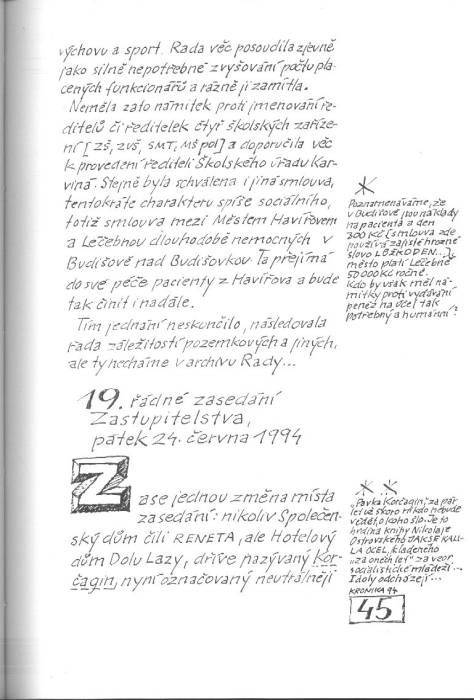 výchovu a sport. Rada věc posoudila zjevně
jako silně nepotřebné zvyšování počtu pla-
cených funkcionářů a rázně ji zamítla.
Neměla zato námitek proti jmenování ře-
ditelů či ředitelek čtyř školských zaříze-
ní [ZŠ, ZUŠ, SMT, MŠ pol] a doporučila věc
k provedení řediteli Školského úřadu Kar-
viná. Stejně byla schválena i jiná smlouva,
tentokráte charakteru spíše sociálního,
totiž smlouva mezi Městem Havířovem
a Léčebnou dlouhodobě nemocných v
Budišově nad Budišovkou. Ta přejímá
do své péče pacienty z Havířova a bude
tak činit i nadále.
Tím jednání neskončilo, následovala
řada záležitostí pozemkových a jiných,
ale ty necháme v archívu Rady...
*
Poznamenáváme, že
v Budišově jsou náklady
na pacienta a den
300 Kč [smlouva zde
používá zajisté hrozné
slovo LŮŽKODEN...],
město platí Léčebně
50 000 Kč ročně.
Kdo by však měl ná-
mitky proti vydávání
peněz na účel tak
potřebný a humánní?
19. řádné zasedání
Zastupitelstva,
pátek 24. června 1994
Zase jednou změna místa
zasedání: nikoliv Společen-
ský dům čili RENETA, ale Hotelový
dům Dolu Lazy, dříve nazývaný Kor-
čagin, nyní označovaný neutrálněji
* *
„Pavka Korčagin," za pár
let už skoro nikdo nebude
vědět, o koho šlo. Je to
hrdina knihy Nikolaje
Ostrovského JAK SE KALI-
LA OCEL, kladeného
„za oněch let" za vzor
socialistické mládeži...
Idoly odcházejí...
KRONIKA 94
45